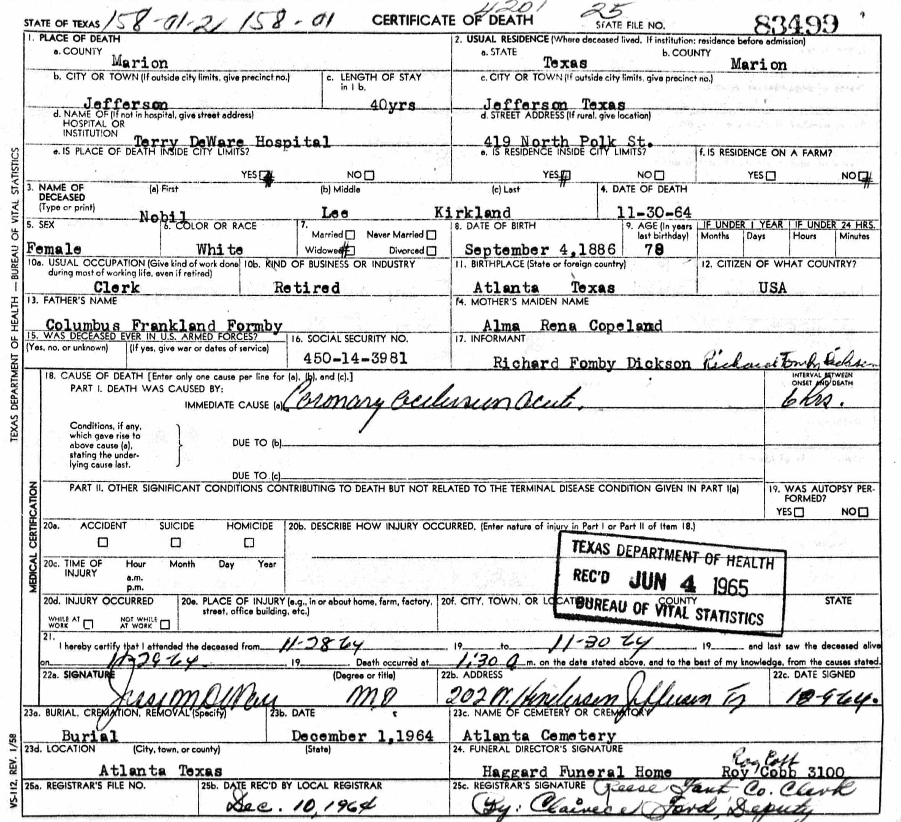 STATE OF TEXAS 158-01-21 158-01 CERTIFICATE OF DEATH 4201 25 STATE FILE NO. 83499
1. PLACE OF DEATH 2. USUAL RESIDENCE (Where deceased lived. If institution: residence before admission)
a. COUNTY a. STATE b. COUNTY
Marion Texas Marion
b. CITY OR TOWN (If outside city limits, give precinct no.) c. LENGTH OF STAY in 1 b. c. CITY OR TOWN (If outside city limits, give precinct no.)
Jefferson 40yrs Jefferson Texas
d. NAME OF (If not in hospital, give street address) HOSPITAL OR INSTITUTION d. STREET ADDRESS (If rural, give location)
Terry DeWare Hospital 419 North Polk St.
e. IS PLACE OF DEATH INSIDE CITY LIMITS? e. IS RESIDENCE INSIDE CITY LIMITS? f. IS RESIDENCE ON A FARM?
YES NO YES NO YES NO
3. NAME OF DECEASED (Type or print) (a) First (b) Middle (c) Last 4. DATE OF DEATH
Nobil Lee Kirkland 11-30-64
5. SEX 6. COLOR OR RACE 7. Married Never Married Widowed Divorced 8. DATE OF BIRTH 9. AGE (In years last birthday) IF UNDER 1 YEAR IF UNDER 24 HRS.
Months Days Hours Minutes
Female White September 4,1886 78
10a. USUAL OCCUPATION (Give kind of work done during most of working life, even if retired) 10b. KIND OF BUSINESS OR INDUSTRY 11. BIRTHPLACE (State or foreign country) 12. CITIZEN OF WHAT COUNTRY?
Clerk Retired Atlanta Texas USA
13. FATHER'S NAME 14. MOTHER'S MAIDEN NAME
Columbus Frankland Formby Alma Rena Copeland
15. WAS DECEASED EVER IN U.S. ARMED FORCES? 16. SOCIAL SECURITY NO. 17. INFORMANT
(Yes, no, or unknown) (If yes, give war or dates of service) 450-14-3981 Richard Fomby Dickson Richard Fomby Dickson
18. CAUSE OF DEATH [Enter only one cause per line for (a), (b), and (c).] INTERVAL BETWEEN ONSET AND DEATH
PART I. DEATH WAS CAUSED BY:
IMMEDIATE CAUSE (a) Coronary Occlussion Acute. 6 hrs.
Conditions, if any, which gave rise to above cause (a), stating the underlying cause last.
DUE TO (b)
DUE TO (c)
PART II. OTHER SIGNIFICANT CONDITIONS CONTRIBUTING TO DEATH BUT NOT RELATED TO THE TERMINAL DISEASE CONDITION GIVEN IN PART I(a) 19. WAS AUTOPSY PERFORMED?
YES NO
20a. ACCIDENT SUICIDE HOMICIDE 20b. DESCRIBE HOW INJURY OCCURRED. (Enter nature of injury in Part I or Part II of Item 18.)
20c. TIME OF INJURY Hour Month Day Year
a.m.
p.m.
TEXAS DEPARTMENT OF HEALTH
REC'D JUN 4 1965
BUREAU OF VITAL STATISTICS
20d. INJURY OCCURRED 20e. PLACE OF INJURY (e.g., in or about home, farm, factory, street, office building, etc.) 20f. CITY, TOWN, OR LOCATION COUNTY STATE
WHILE AT WORK NOT WHILE AT WORK
21. I hereby certify that I attended the deceased from 11-28-64 19 to 11-30 64 19 and last saw the deceased alive
on 11-29-64. 19 Death occurred at 1:30 a m. on the date stated above, and to the best of my knowledge, from the causes stated.
22a. SIGNATURE (Degree or title) 22b. ADDRESS 22c. DATE SIGNED
M D 202 W. Henderson Jefferson Tx 12-9-64.
23a. BURIAL, CREMATION, REMOVAL (Specify) 23b. DATE 23c. NAME OF CEMETERY OR CREMATORY
Burial December 1,1964 Atlanta Cemetery
23d. LOCATION (City, town, or county) (State) 24. FUNERAL DIRECTOR'S SIGNATURE
Atlanta Texas Haggard Funeral Home Roy Cobb Roy Cobb 3100
25a. REGISTRAR'S FILE NO. 25b. DATE REC'D BY LOCAL REGISTRAR 25c. REGISTRAR'S SIGNATURE Co. Clerk
Dec. 10, 1964 By: Ford, Deputy
TEXAS DEPARTMENT OF HEALTH — BUREAU OF VITAL STATISTICS
MEDICAL CERTIFICATION
VS-112, REV. 1/58